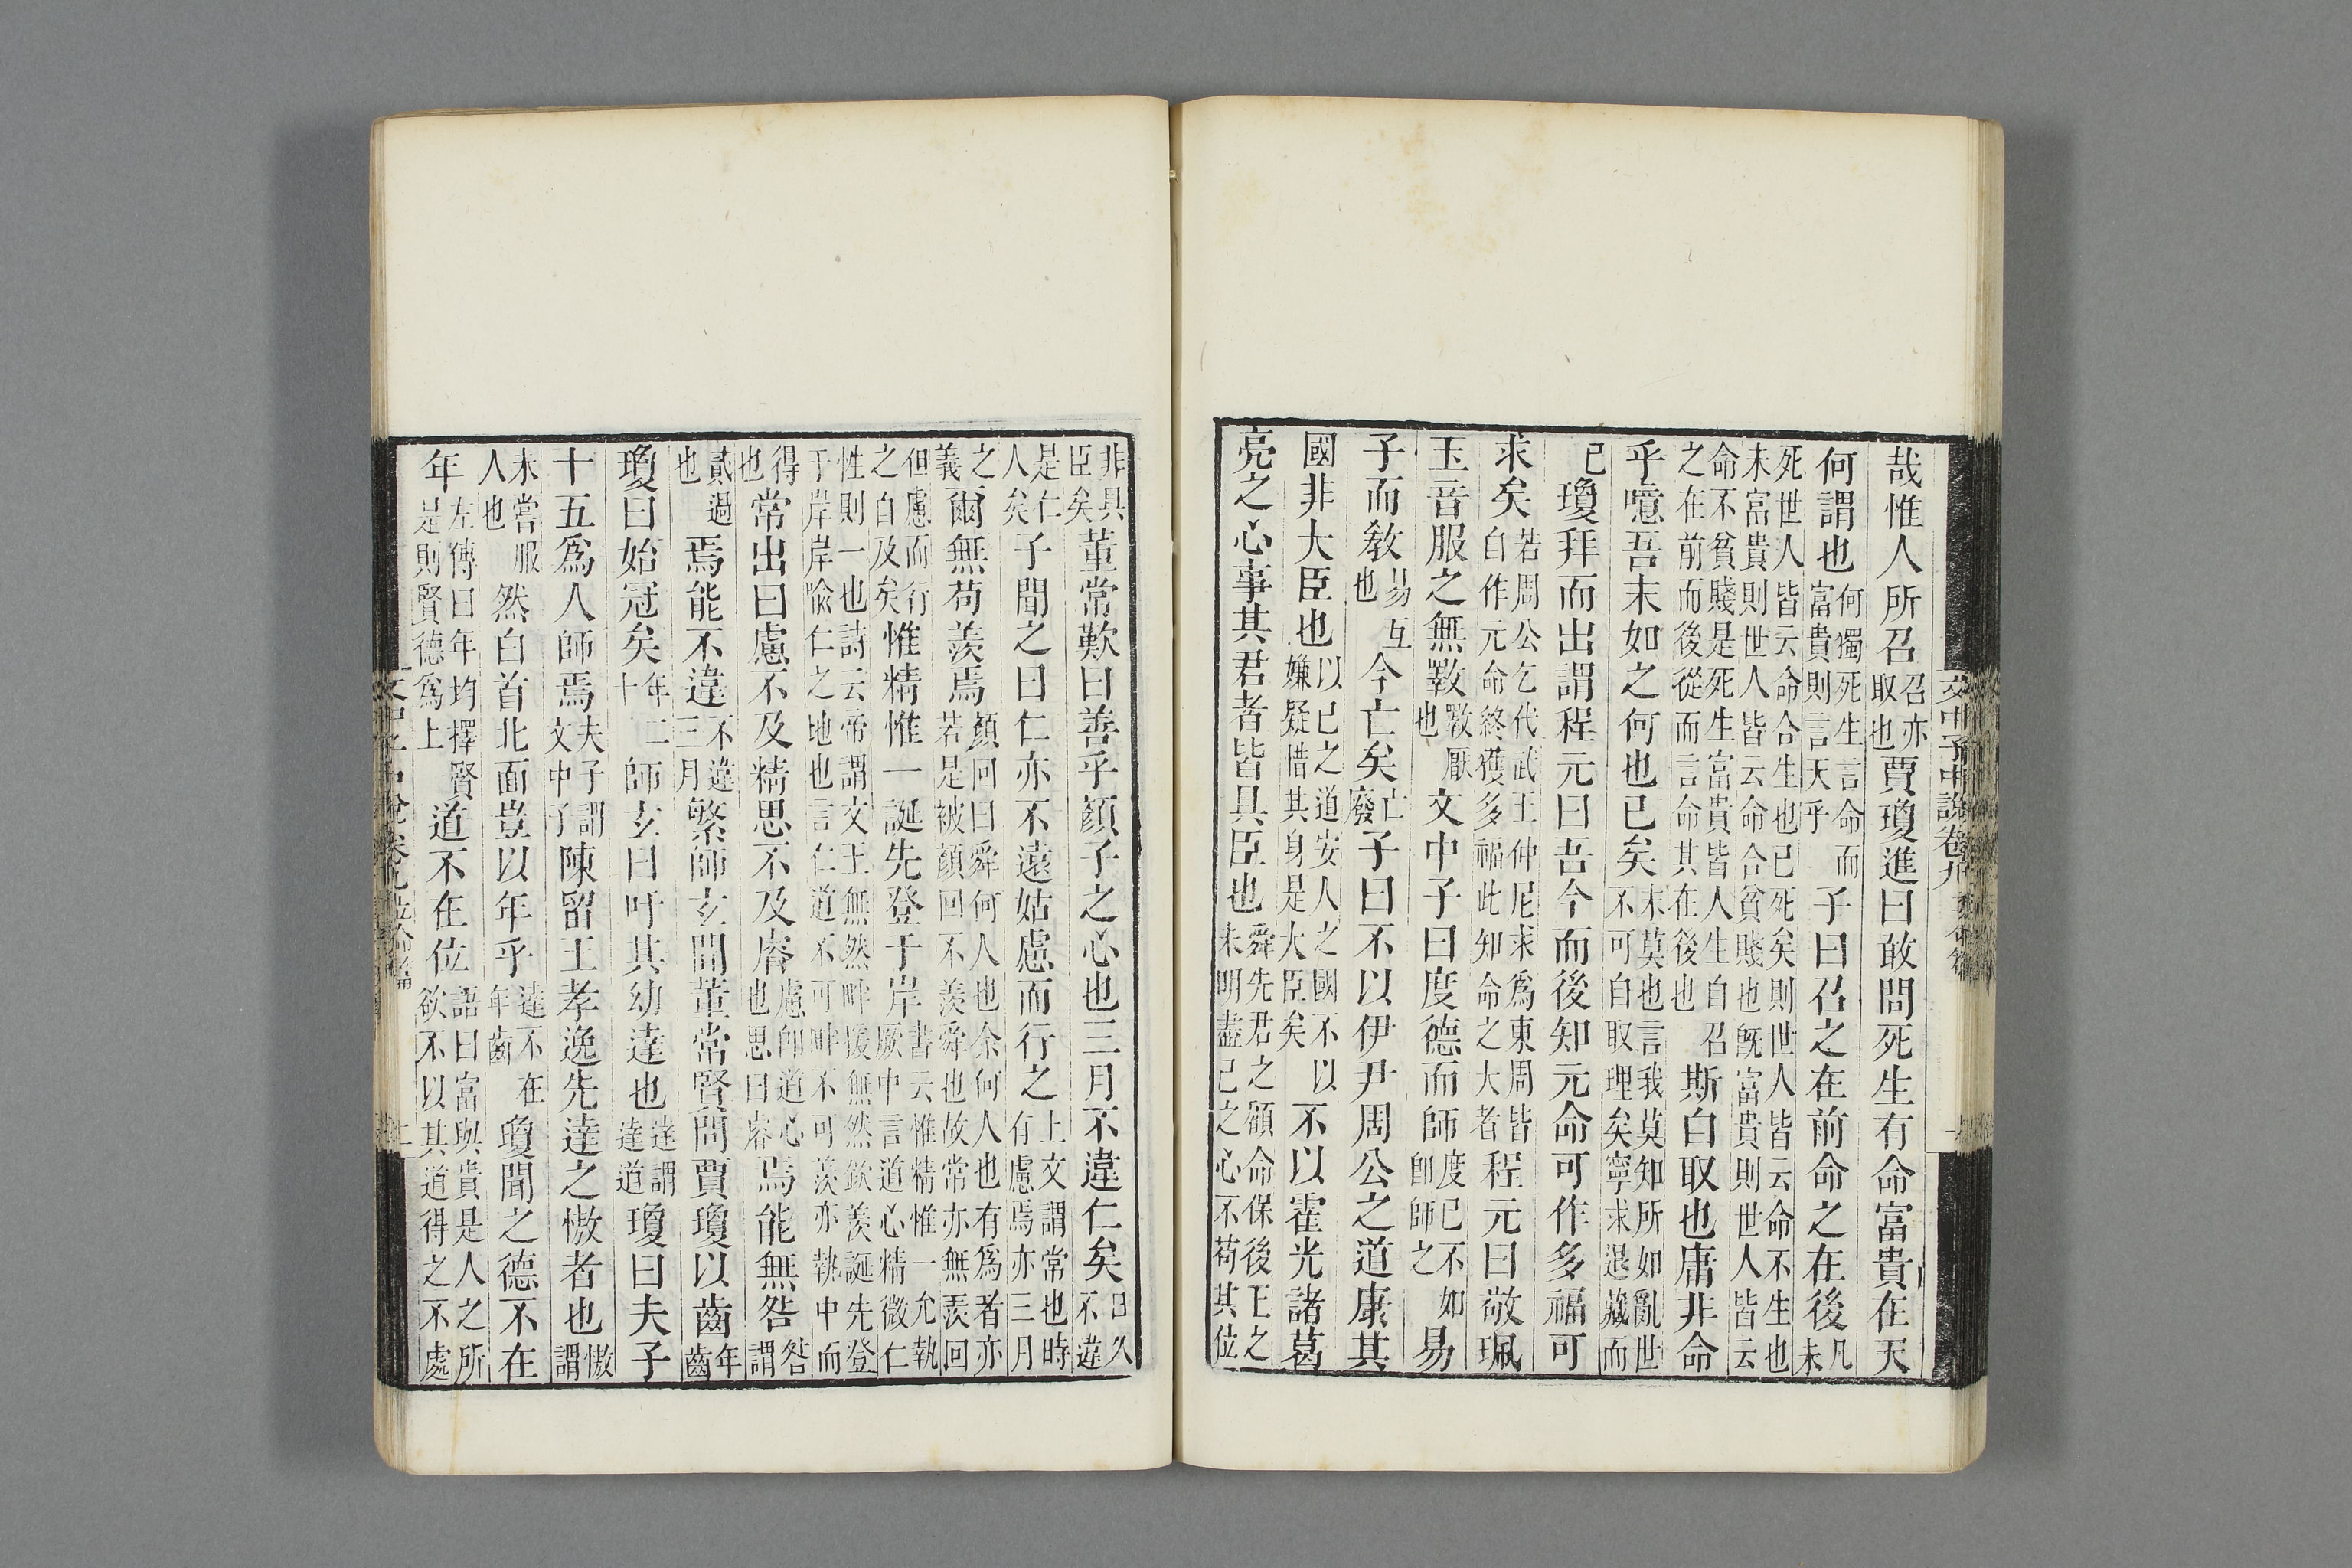 文中子中說卷九
哉惟人所召召亦取也賈瓊進曰敢問死生有命富貴在天
何謂也何獨死生言命而富貴則言天乎子曰召之在前命之在後凡未
死世人皆云命合生也已死矣則世人皆云命不生也未富貴則世人皆云命合貧賤也旣富貴則世人皆云
命不貧賤是死生富貴皆人生自召之在前而後從而言命其在後也斯自取也庸非命
乎噫吾末如之何也已矣末莫也言我莫知所如亂世不可自取理矣寧求退藏而
已瓊拜而出謂程元曰吾今而後知元命可作多福可
求矣若周公乞代武王仲尼求爲東周皆自作元命終獲多福此知命之大者程元曰敬珮
玉音服之無斁斁厭也文中子曰度德而師度已不如卽師之易
子而敎易互也今亡矣亡廢子曰不以伊尹周公之道康其
國非大臣也以已之道安人之國不以嫌疑惜其身是大臣矣不以霍光諸葛
亮之心事其君者皆具臣也舜先君之顧命保後王之未明盡已之心不苟其位
非具臣矣董常歎曰善乎顏子之心也三月不違仁矣日久不違
是仁人矣子聞之曰仁亦不遠姑慮而行之上文謂常也時有慮焉亦三月
之義爾無苟羨焉顏回曰舜何人也余何人也有爲者亦若是被顏回不羨舜也故常亦無羨回
但慮而行之自及矣惟精惟一誕先登于岸書云惟精惟一允執厥中言道心精微仁
性則一也詩云帝謂文王無然畔援無然歆羨誕先登于岸岸喩仁之地也言仁道不可畔不可羨亦執中而
得也常出曰慮不及精思不及睿慮卽道心也思曰睿焉能無咎咎謂
貳過也焉能不違不違三月繁師玄聞董常賢問賈瓊以齒年齒
瓊曰始冠矣年二十師玄曰吁其幼達也達謂達道瓊曰夫子
十五爲人師焉夫子謂文中子陳留王孝逸先達之慠者也慠謂
未嘗服人也然白首北面豈以年乎達不在年齒瓊聞之德不在
年左傳曰年均擇賢是則賢德爲上道不在位語曰富與貴是人之所欲不以其道得之不處